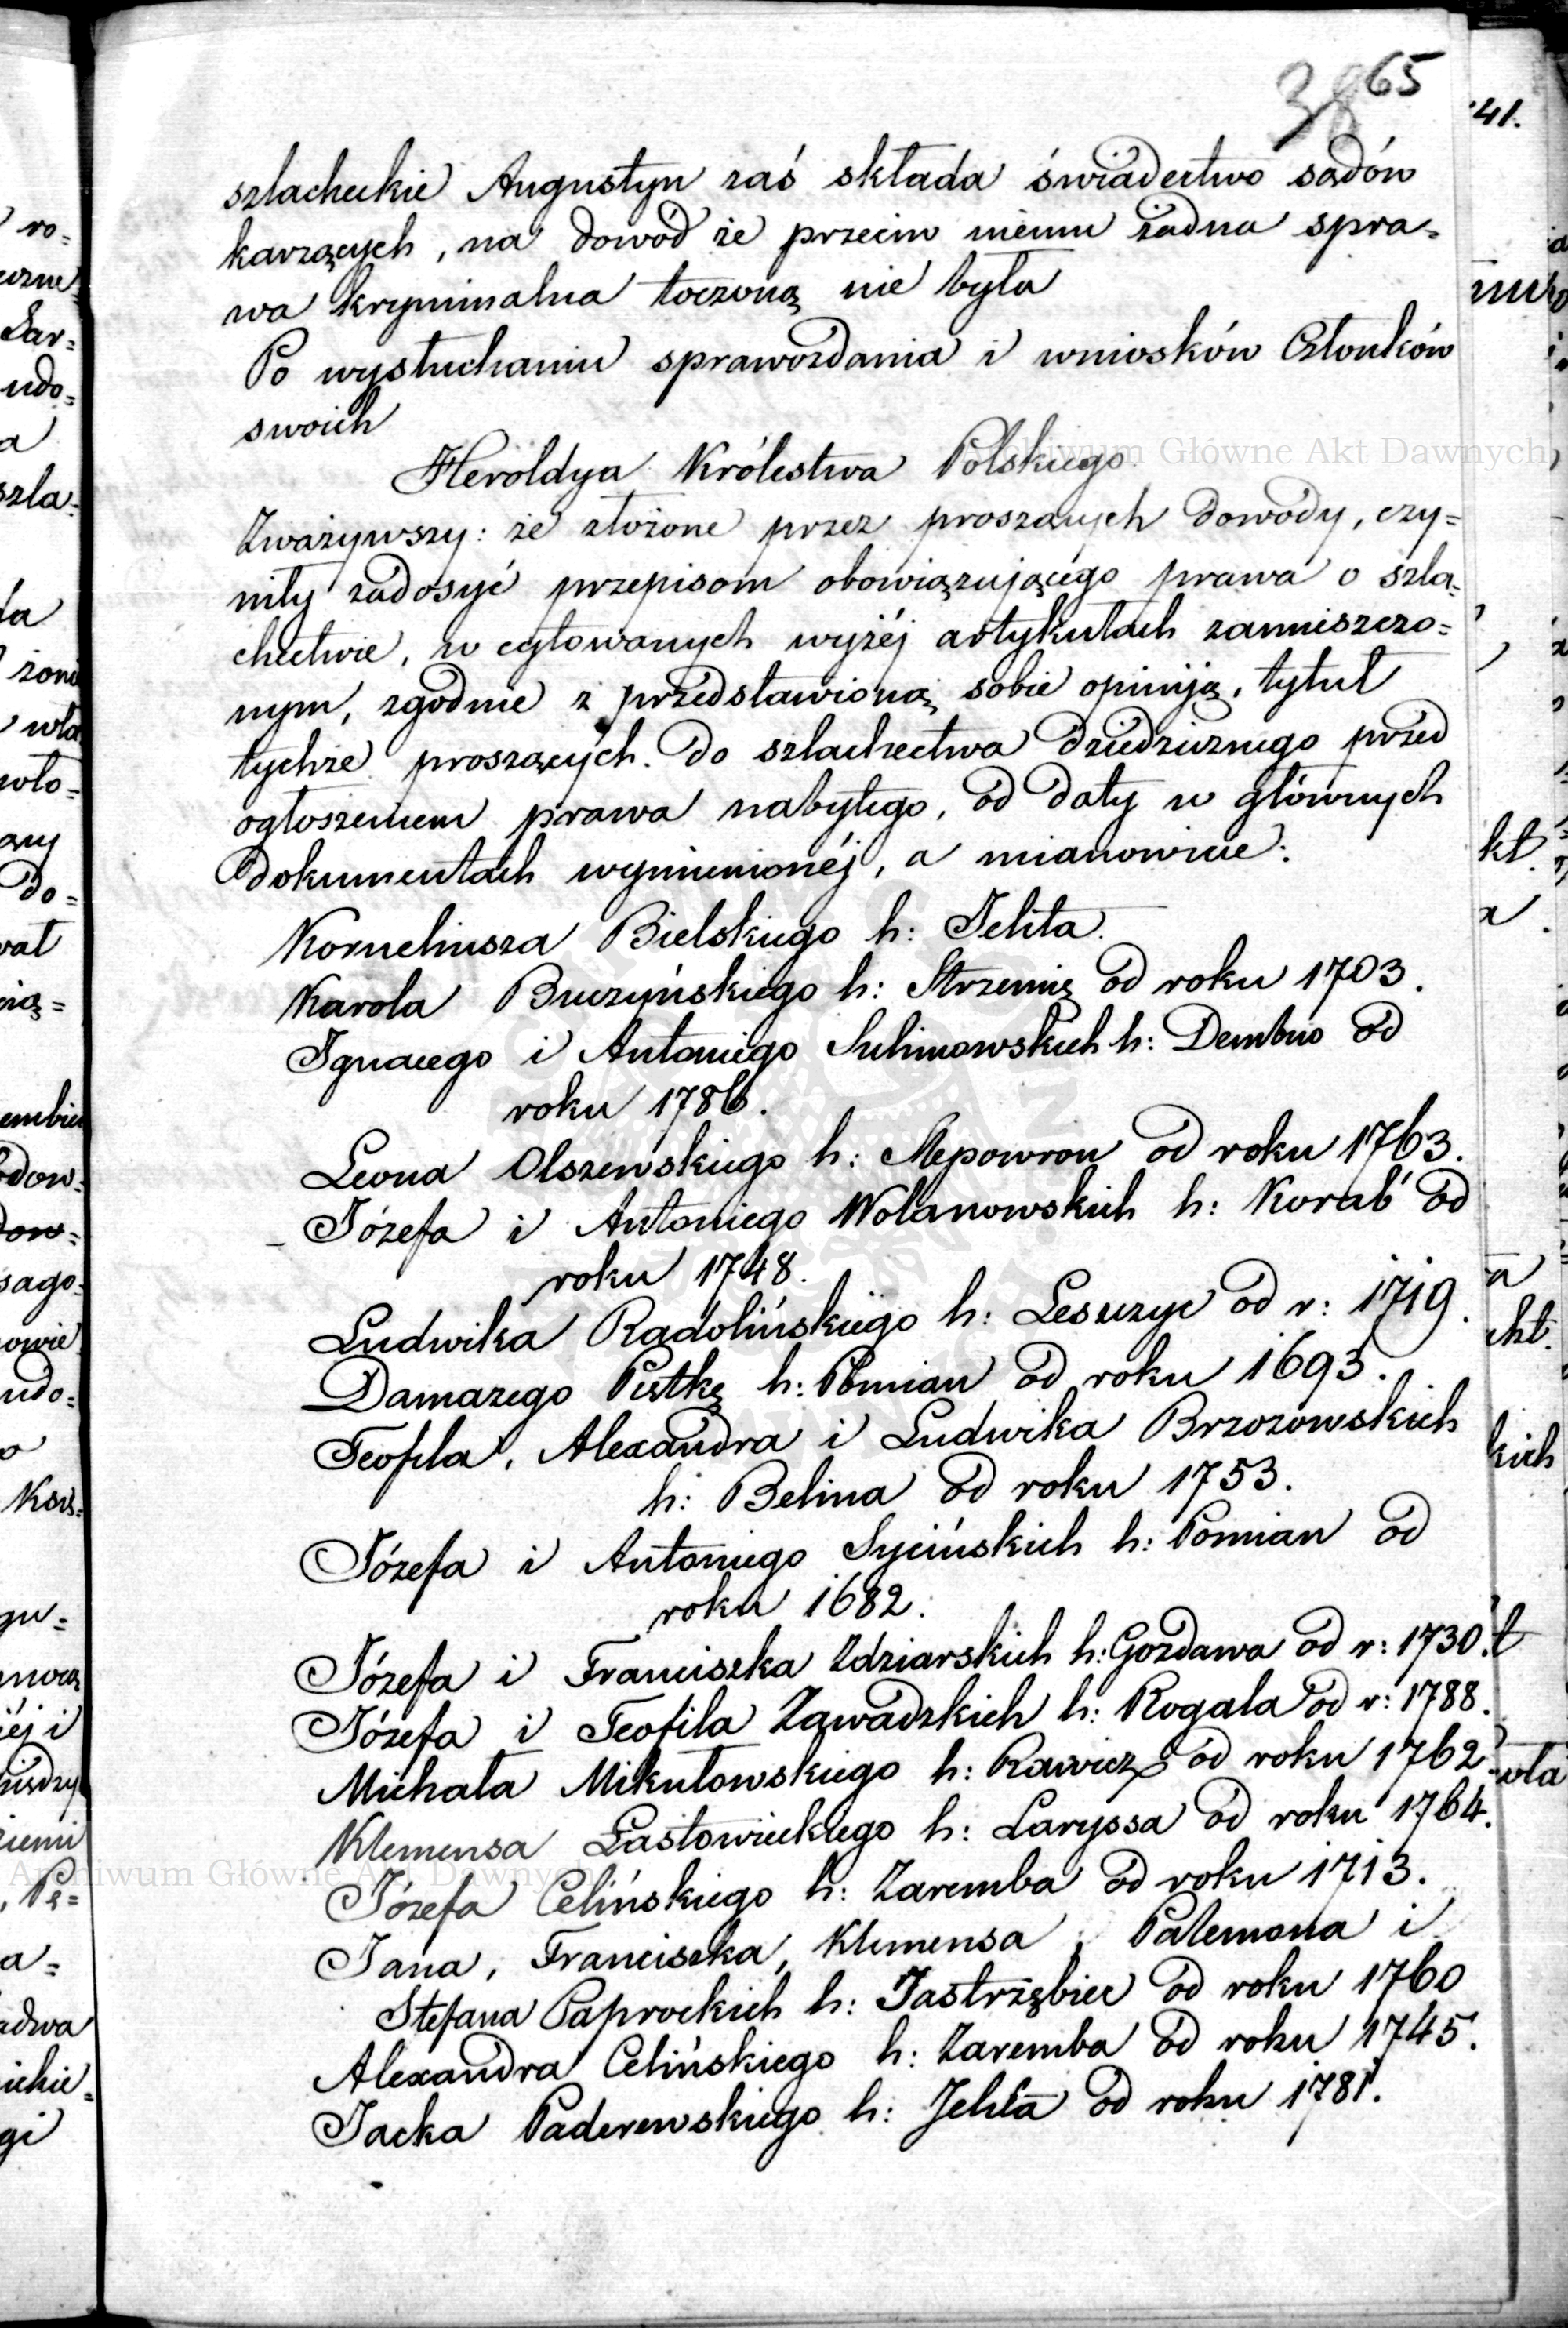 38 65
szlacheckie Augustyn zaś składa świadectwo sądów
karzących, na dowód że przeciw niemu żadna spra=
wa kryminalna toczoną nie była
Po wysłuchaniu sprawozdania i wniosków Członków
swoich
Heroldya Królestwa Polskiego
Zważywszy: że złożone przez proszących dowody, czy=
niły zadosyć przepisom obowiązującego prawa o szla=
chectwie, w cytowanych wyżéj artykułach zamieszczo=
nym, zgodnie z przedstawioną sobie opiniją, tytuł
tychże proszących do szlachectwa dziedzicznego przed
ogłoszeniem prawa nabytego, od daty w głównych
dokumentach wymienionéj, a mianowicie:
Korneliusza Bielskiego h: Jelita.
Karola Buczyńskiego h: Strzemię od roku 1703.
Ignacego i Antoniego Sulimowskich h: Dembno od
roku 1786.
Leona Olszewskiego h: Slepowron od roku 1763.
Józefa i Antoniego Wolanowskich h: Korab' od
roku 1748.
Ludwika Radolińskiego h: Leszczyc od r: 1719.
Damazego Pистkę h: Pomian od roku 1693.
Teofila, Alexandra i Ludwika Brzozowskich
h: Belina od roku 1753.
Józefa i Antoniego Sycińskich h: Pomian od
roku 1682.
Józefa i Franciszka Zdziarskich h: Gozdawa od r: 1730.
Józefa i Teofila Zawadzkich h: Rogala od r: 1788.
Michała Mikułowskiego h: Rawicz od roku 1762.
Klemensa Łastowieckiego h: Laryssa od roku 1764.
Józefa Celińskiego h: Zaremba od roku 1713.
Jana, Franciszka, Klemensa, Palemona i
Stefana Paprockich h: Jastrzębiec od roku 1760
Alexandra Celińskiego h: Zaremba od roku 1745.
Jacka Paderewskiego h: Jelita od roku 1781.
Archiwum Główne Akt Dawnych
Archiwum Główne Akt Dawnych